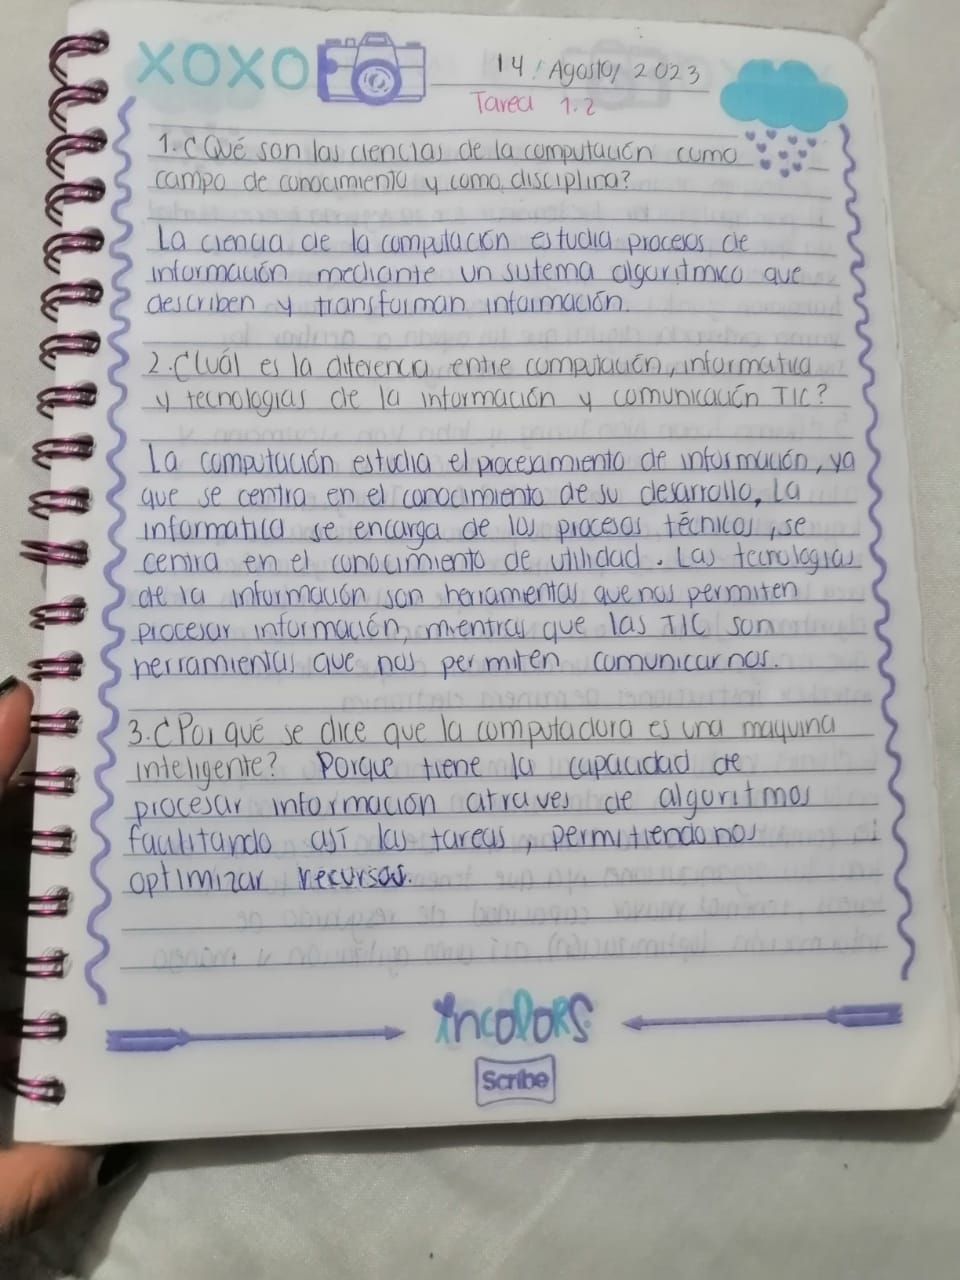 XOXO
14 / Agosto / 2023
Tarea 1.2
1. ¿Qué son las ciencias de la computación como
campo de conocimiento y como disciplina?
La ciencia de la computación estudia procesos de
información mediante un sistema algoritmico que
describen y transforman información.
2. ¿Cuál es la diferencia entre computación, informatica
y tecnologias de la información y comunicación TIC?
La computación estudia el procesamiento de información, ya
que se centra en el conocimiento de su desarrollo, La
informatica se encarga de los procesos técnicos, se
centra en el conocimiento de utilidad. Las tecnologias
de la información son herramientas que nos permiten
procesar información, mientras que las TIC son
herramientas que nos permiten comunicarnos.
3. ¿Por qué se dice que la computadora es una maquina
inteligente? Porque tiene la capacidad de
procesar información atraves de algoritmos
facilitando así las tareas, permitiendonos
optimizar recursos.
incolors
Scribe